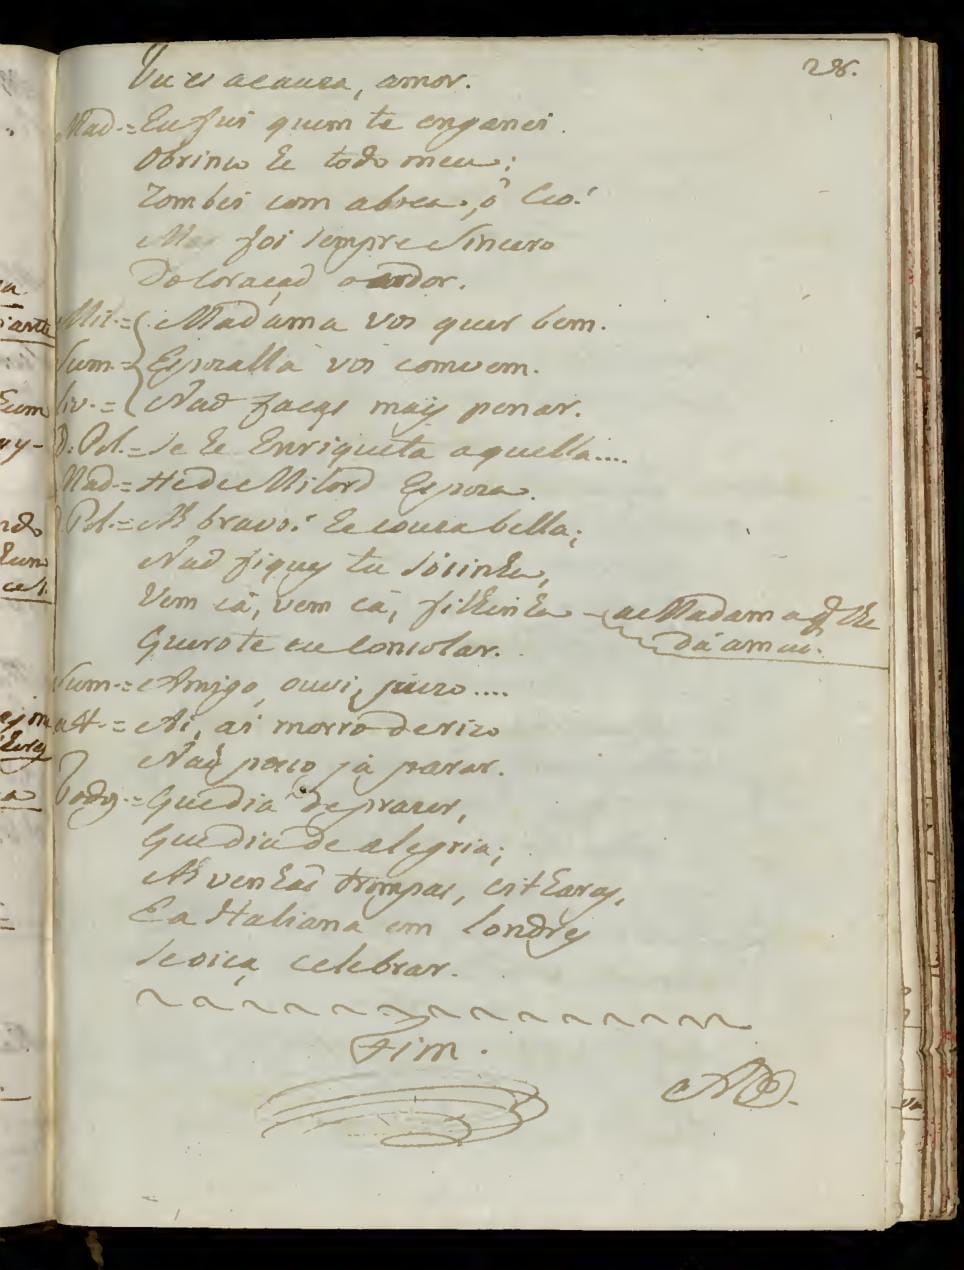 28.
Tu es a cauza, amor.
Mad.= Eu fui quem te enganei.
O brinco he todo meu;
Zombei com a breca, ó Ceo!
Mas foi sempre sincero
Do Coraçaõ o ardor.
Mil.= Madama vos quer bem.
Sum.= Espozalla vos convem.
Liv.= Naõ façaes mays penar.
D: Pol.= Se he Enriqueta aquella....
Mad.= He de Milord Espoza.
Pol.= Ah bravo! he couza bella;
Naõ fiques tu sosinha,
Vem cá, vem cá, filhinha
a Madama q̃ lhe
dá a maõ.
Quero te eu Consolar.
Sum.= Amigo, ouvi,
Ai, ai morro de rizo
Naõ posso já parar.
Todos.= Que dia de prazer,
Que dia de alegria;
Ah venhaõ trompas, citharas,
E a Italiana em Londres
Se oiça celebrar.
Fim.